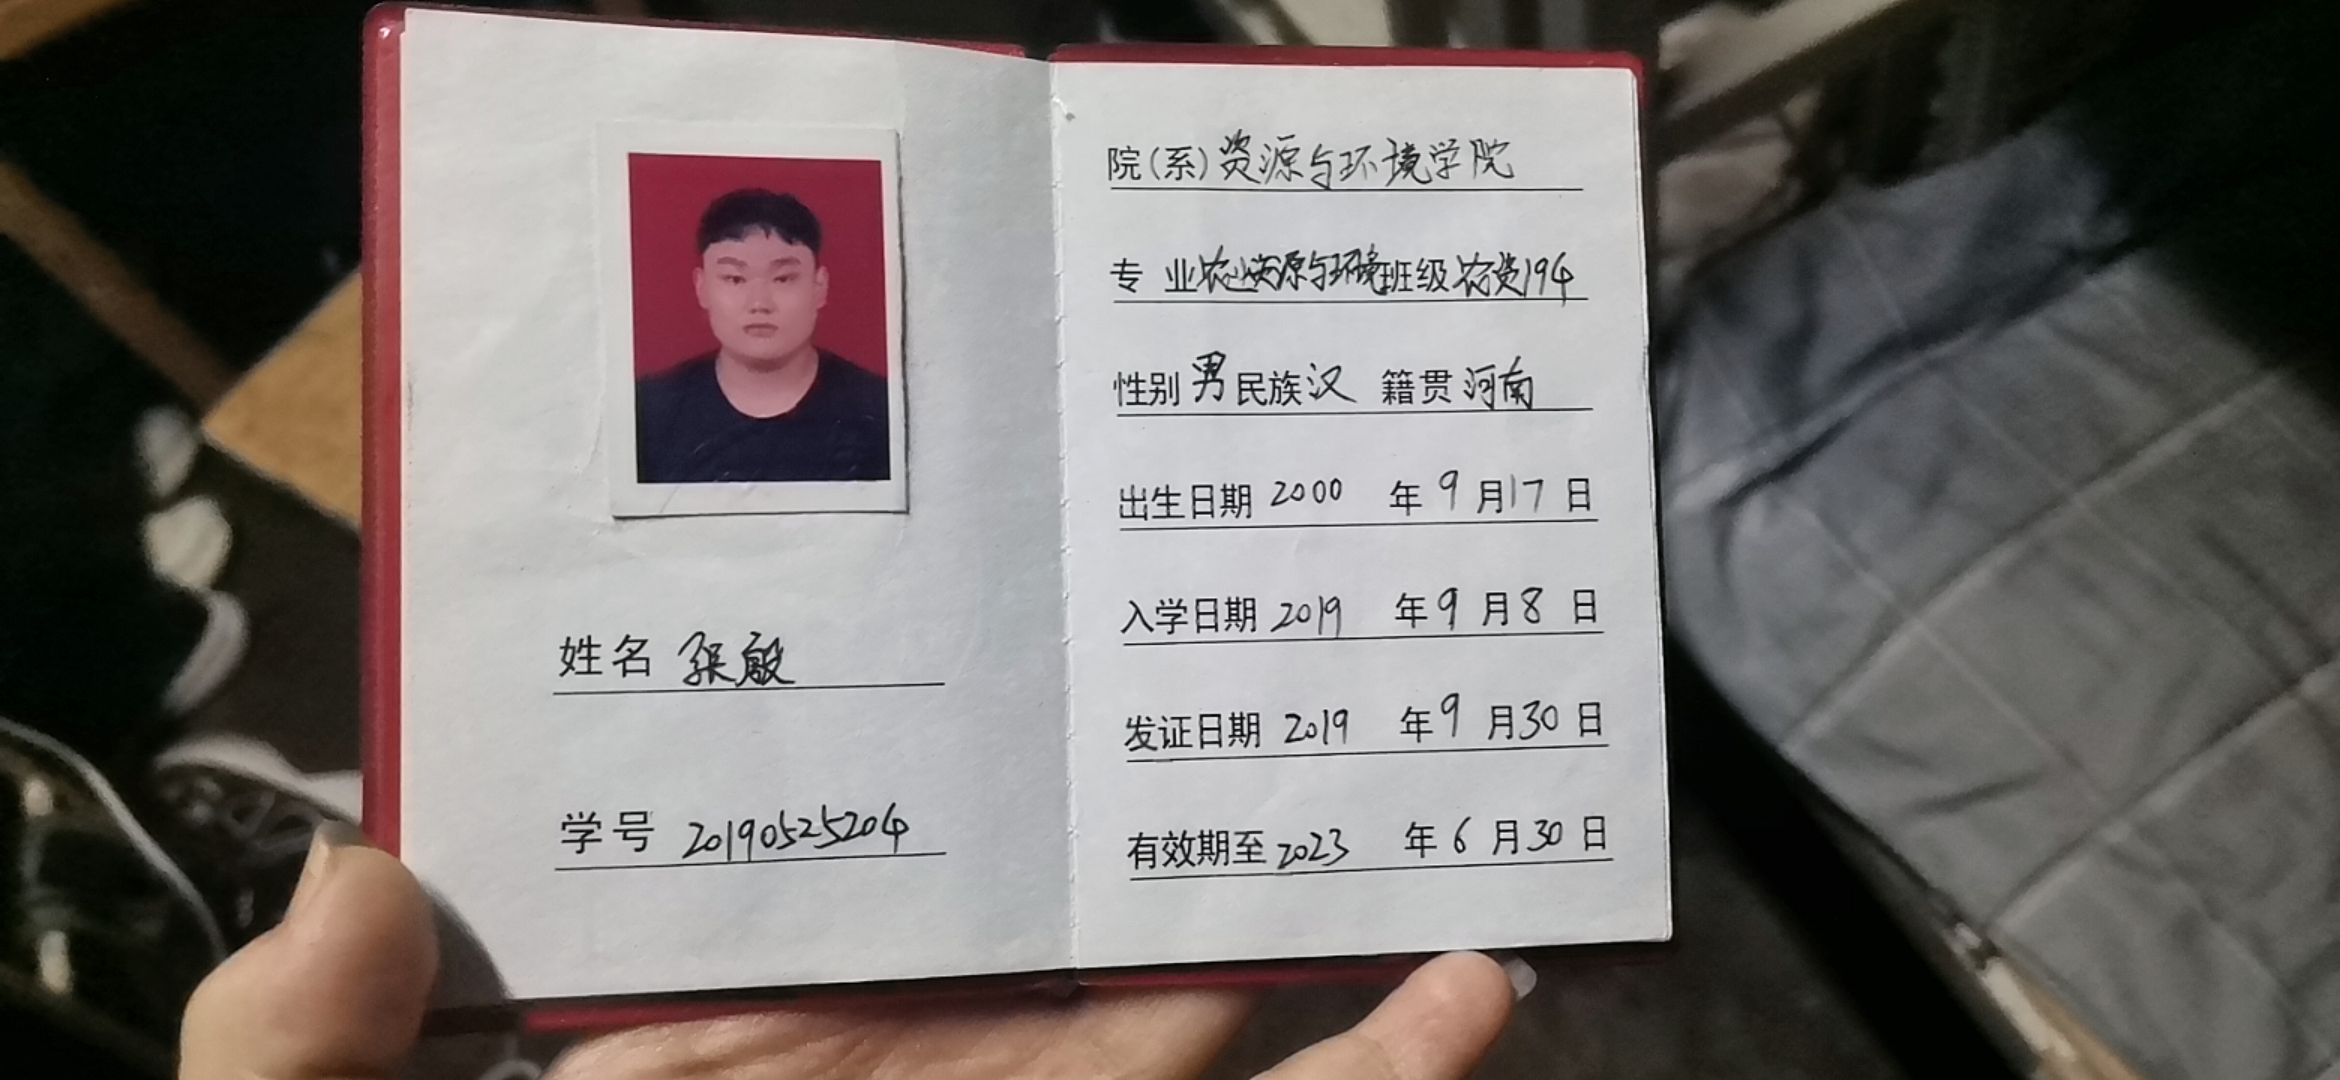 姓名 张殿
学号 20190525204
院(系) 资源与环境学院
专 业 农业资源与环境 班级 农资194
性别 男 民族 汉 籍贯 河南
出生日期 2000 年 9 月 17 日
入学日期 2019 年 9 月 8 日
发证日期 2019 年 9 月 30 日
有效期至 2023 年 6 月 30 日